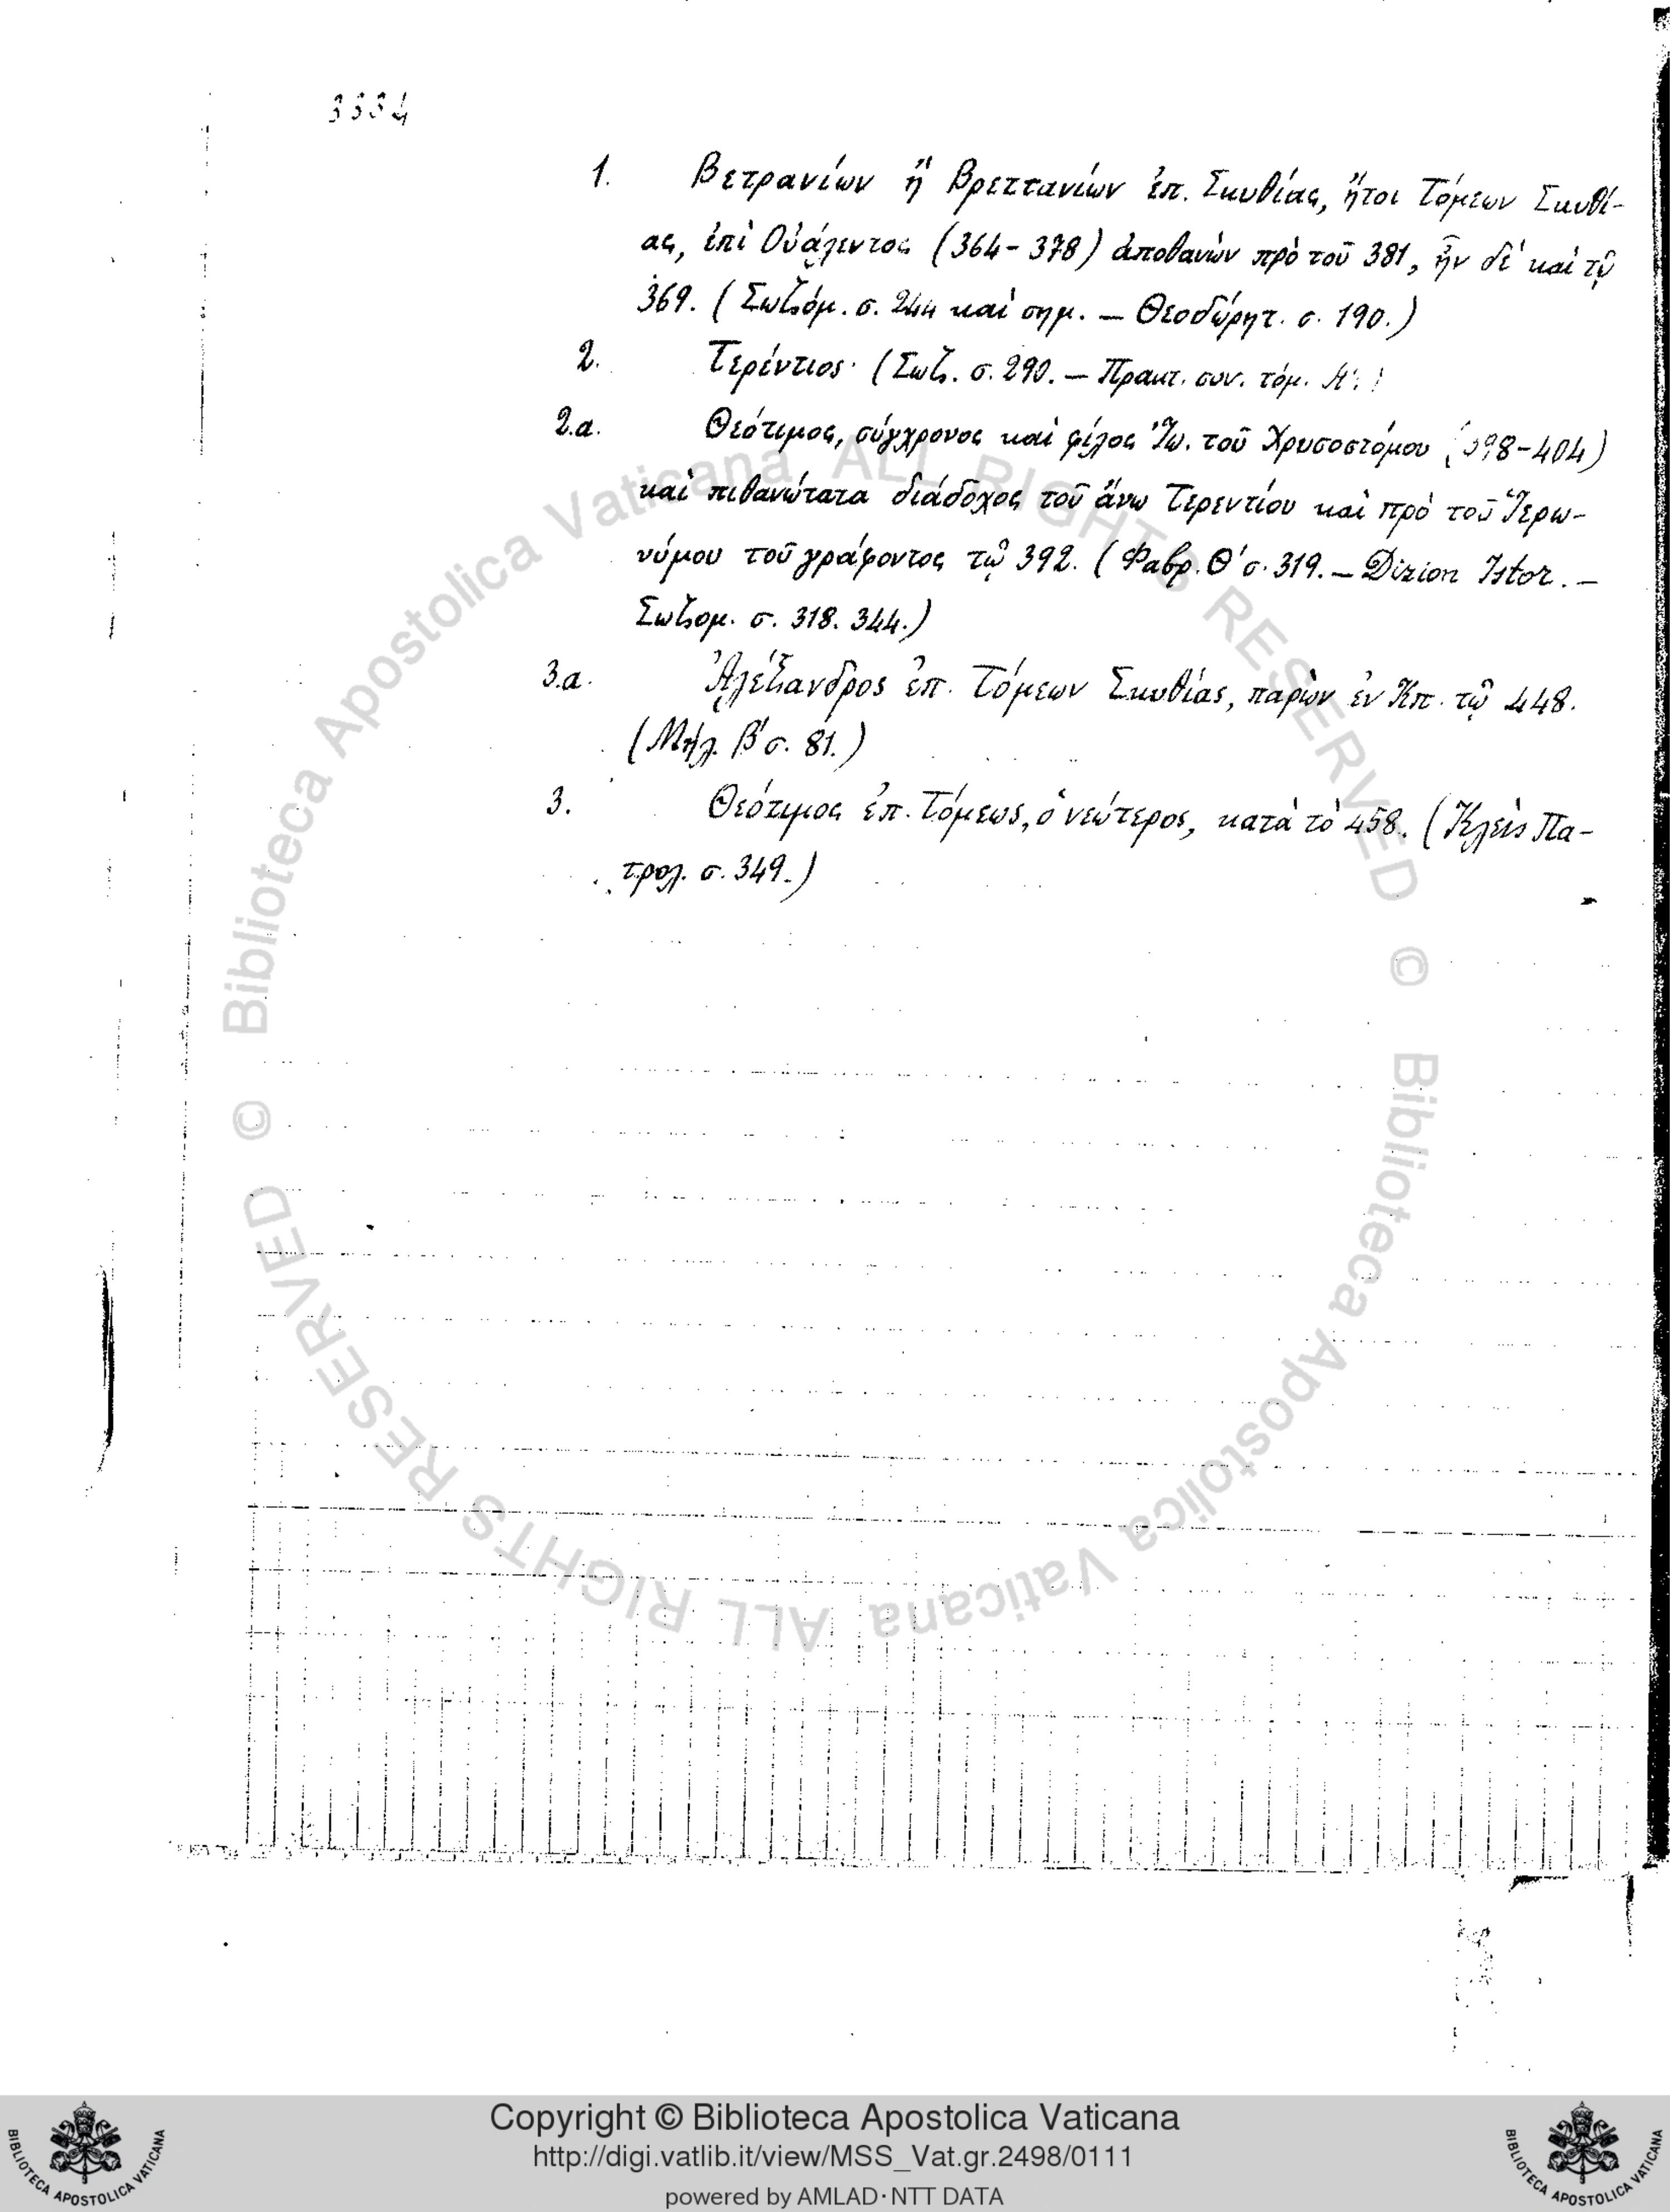 3334
1. Βετρανίων ἢ Βρεττανίων ἐπ. Σκυθίας, ἤτοι Τόμεων Σκυθί-
ας, ἐπὶ Οὐάλεντος (364-378) ἀποθανὼν πρὸ τοῦ 381, ἦν δὲ καὶ τῷ
369. (Σωζόμ. σ. 244 καὶ σημ. — Θεοδώρητ. σ. 190.)
2. Τερέντιος· (Σωζ. σ. 290. — Πρακτ. συν. τόμ. Α'.)
2.α. Θεότιμος, σύγχρονος καὶ φίλος Ἰω. τοῦ Χρυσοστόμου (398-404)
καὶ πιθανώτατα διάδοχος τοῦ ἄνω Τερεντίου καὶ πρὸ τοῦ Ἱερω-
νύμου τοῦ γράφοντος τῷ 392. (Φαβρ. Θ' σ. 319. — Dizion Istor. —
Σωζομ. σ. 318. 344.)
3.α. Ἀλέξανδρος ἐπ. Τόμεων Σκυθίας, παρὼν ἐν Κπ. τῷ 448.
(Μηλ. Β' σ. 81.)
3. Θεότιμος ἐπ. Τόμεως, ὁ νεώτερος, κατὰ τὸ 458. (Κλεὶς Πα-
τρολ. σ. 349.)
© Biblioteca Apostolica Vaticana ALL RIGHTS RESERVED
© Biblioteca Apostolica Vaticana ALL RIGHTS RESERVED
BIBLIOTECA APOSTOLICA VATICANA
Copyright © Biblioteca Apostolica Vaticana
http://digi.vatlib.it/view/MSS_Vat.gr.2498/0111
powered by AMLAD·NTT DATA
BIBLIOTECA APOSTOLICA VATICANA